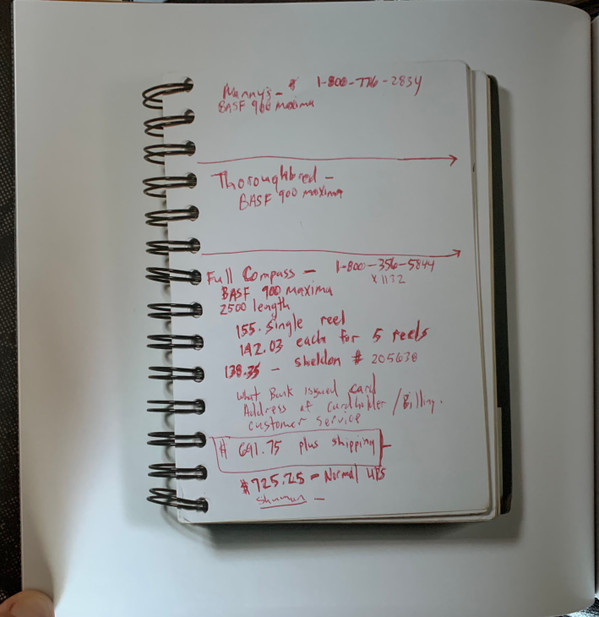 Manny's - # 1-800-776-2834
BASF 900 maxima
Thoroughbred -
BASF 900 maxima
Full Compass - 1-800-356-5844
x1172
BASF 900 maxima
2500 length
155. single reel
142.03 each for 5 reels
138.35 - Sheldon # 205638
What Bank issued card
Address of Cardholder / Billing.
customer service
$ 691.75 plus shipping -
$725.25 - Normal UPS